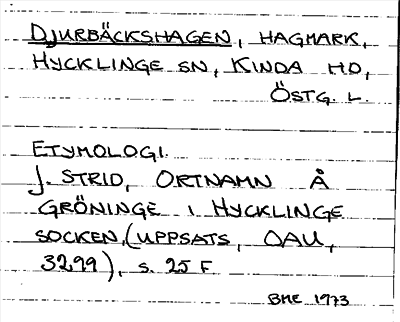 DJURBÄCKSHAGEN, HAGMARK,
HYCKLINGE SN, KINDA HD,
ÖSTG. L.
ETYMOLOGI.
J. STRID, ORTNAMN Å
GRÖNINGE I HYCKLINGE
SOCKEN, (UPPSATS, OAU,
3299), S. 25 F.
BME 1973